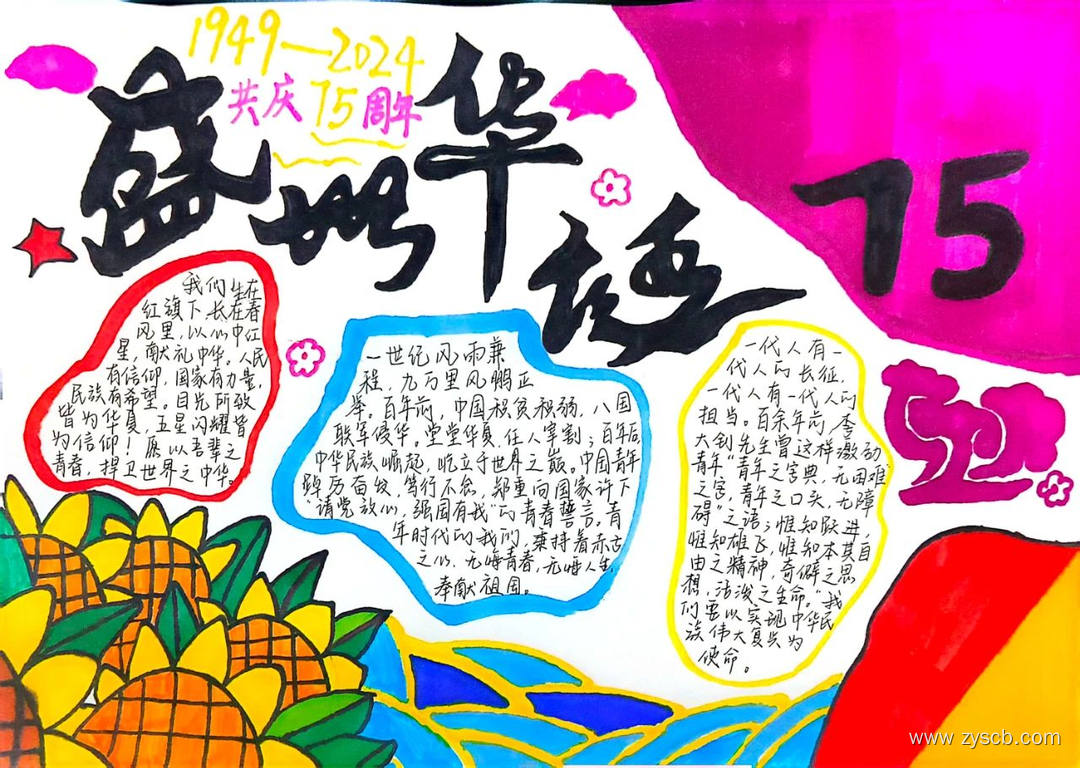 1949—2024
共庆75周年
盛世华诞
75
我们生在
红旗下长在春
风里，以心中红
星，献礼中华。人民
有信仰，国家有力量，
民族有希望。目光所致
皆为华夏，五星闪耀皆
为信仰！愿以吾辈之
青春，捍卫世界之中华。
一世纪风雨兼
程，九万里风鹏正
举。百年前，中国积贫积弱，八国
联军侵华。堂堂华夏，任人宰割；百年后，
中华民族崛起，屹立于世界之巅。中国青年
踔厉奋发，笃行不怠，郑重向国家许下
“请党放心，强国有我”的青春誓言。青
年时代的我们，秉持着赤古
之心，无悔青春，无悔人生，
奉献祖国。
一代人有一
代人的长征，
一代人有一代人的
担当。百余年前，李
大钊先生曾这样激励
青年“青年之字典，无困难
之字，青年之口头，无障
碍”之语；惟知跃进，
惟知雄飞，惟知本其自
由之精神，奇僻之思
想，活泼之生命。”我
们要以实现中华民
族伟大复兴为
使命。
www.zyscb.com